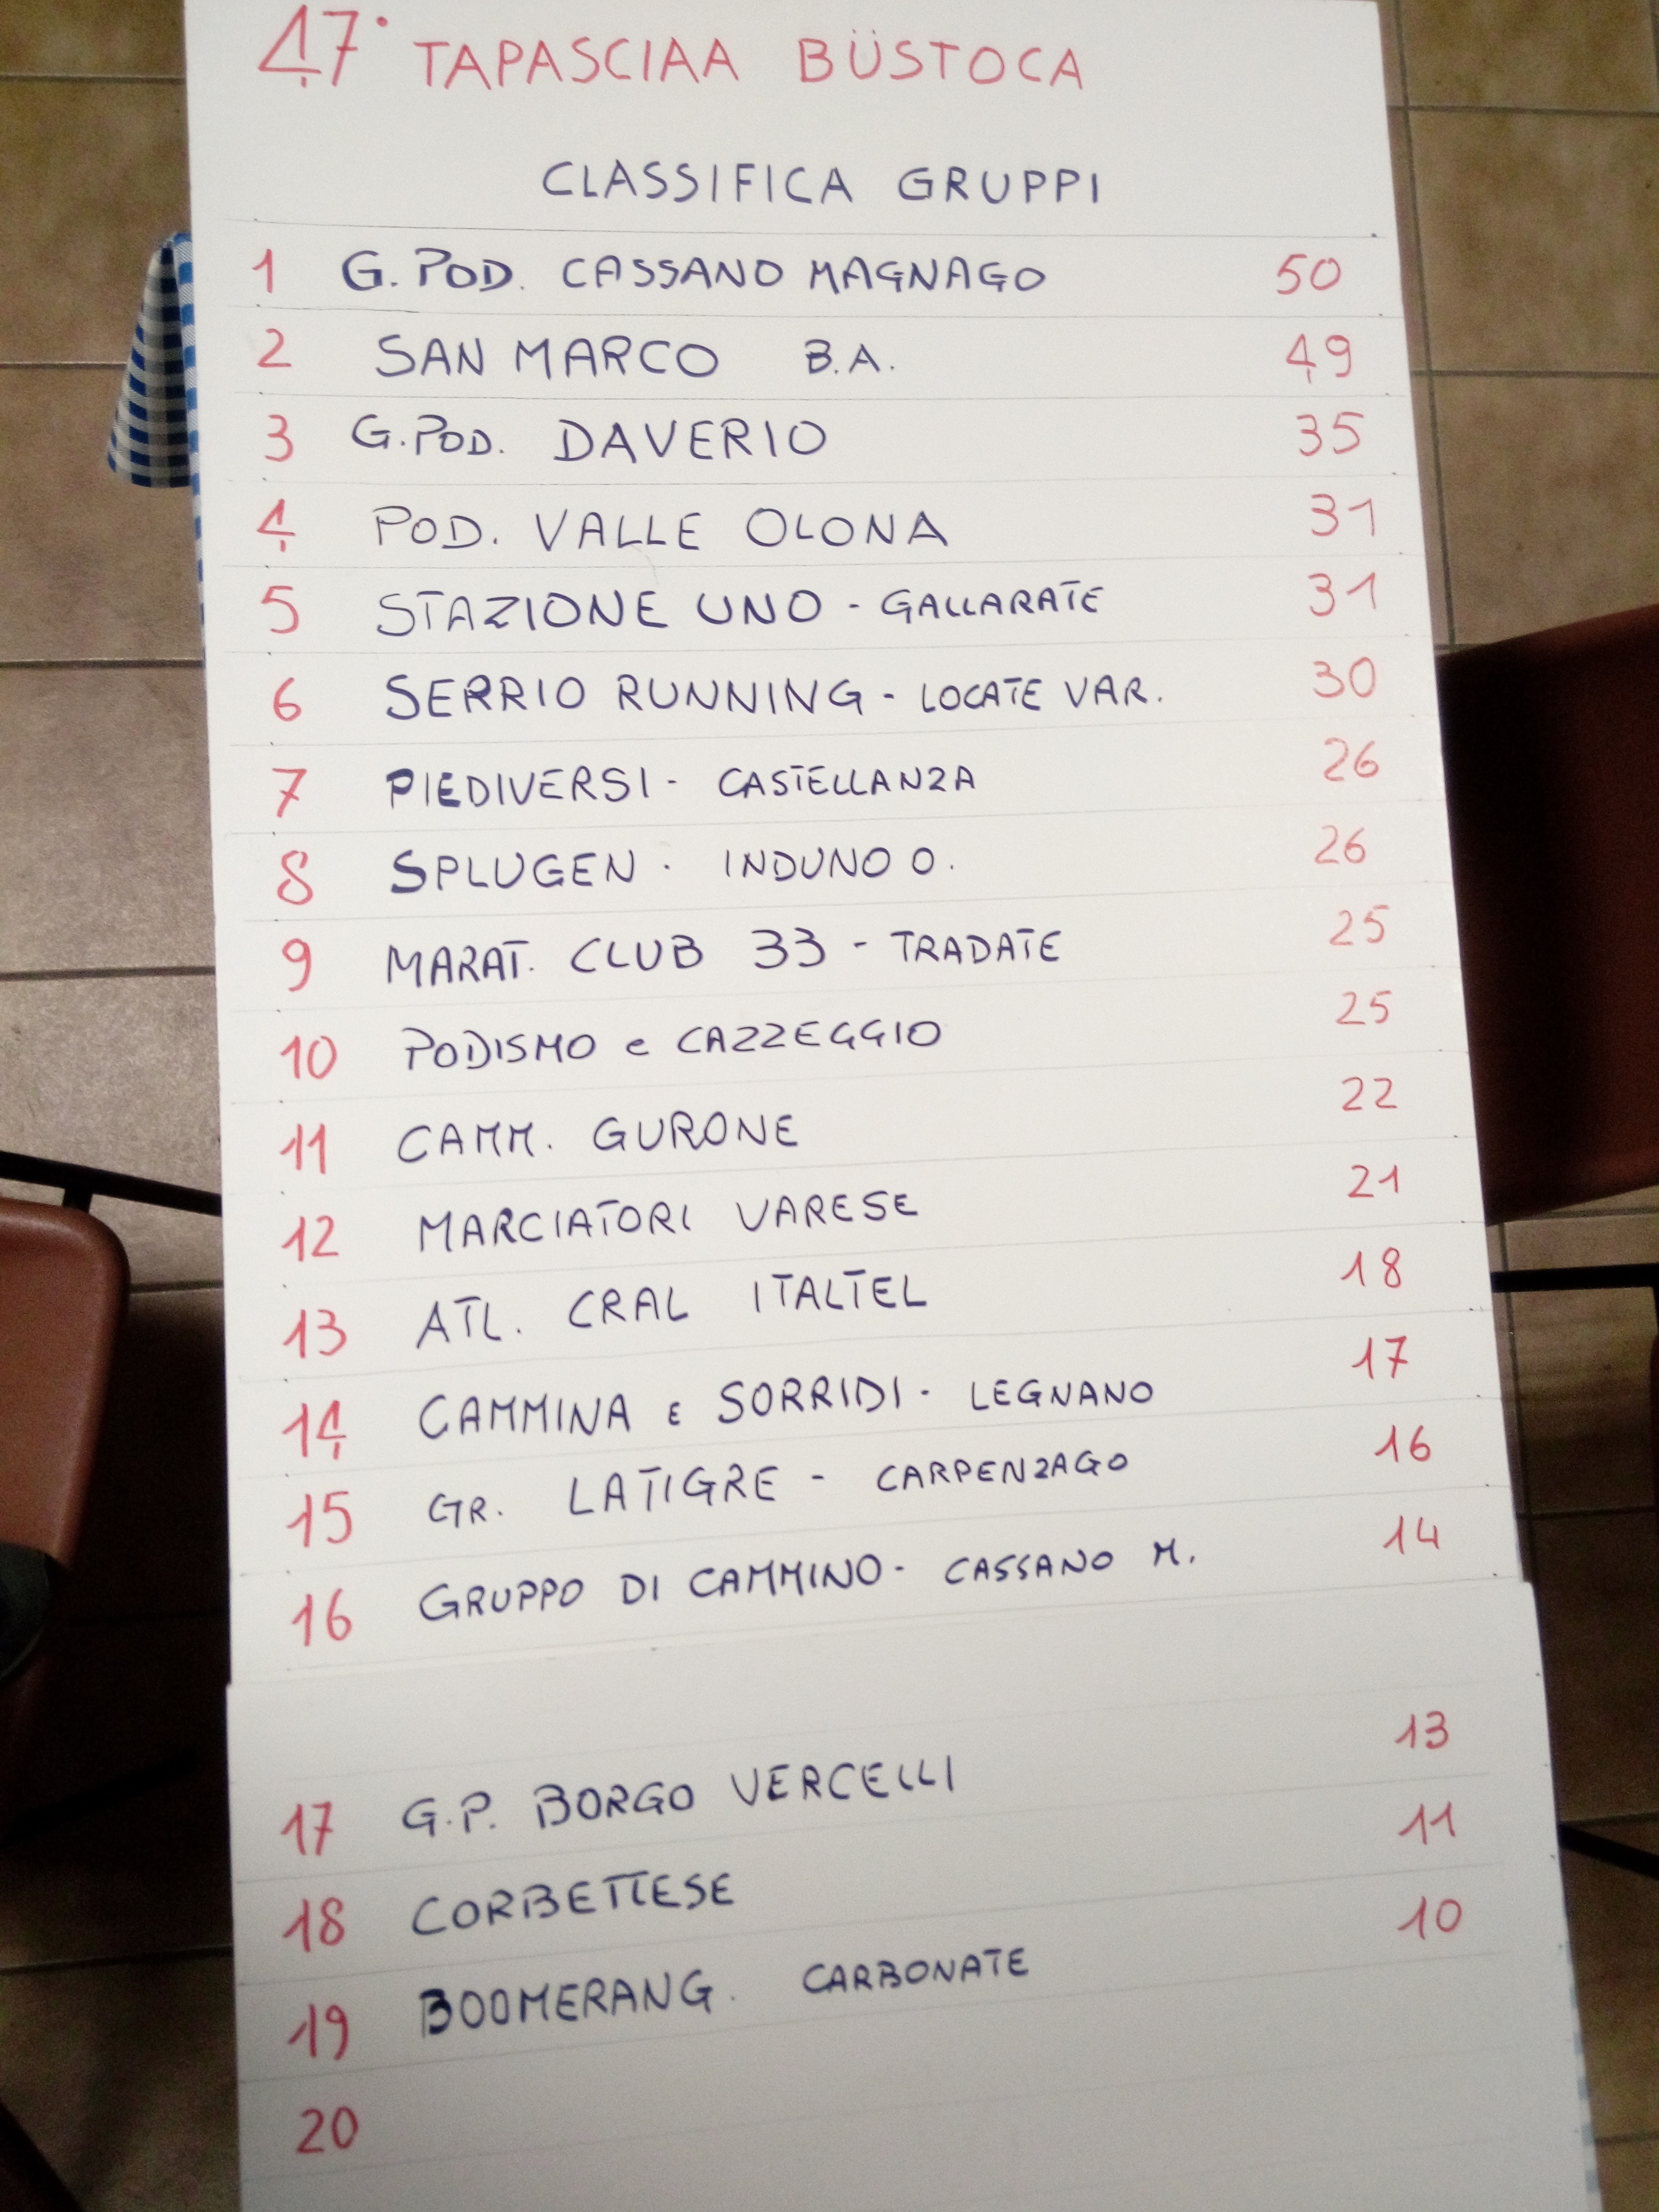 47° TAPASCIAA BÜSTOCA
CLASSIFICA GRUPPI
1 G. POD. CASSANO MAGNAGO 50
2 SAN MARCO B.A. 49
3 G.POD. DAVERIO 35
4 POD. VALLE OLONA 31
5 STAZIONE UNO - GALLARATE 31
6 SERRIO RUNNING - LOCATE VAR. 30
7 PIEDIVERSI - CASTELLANZA 26
8 SPLUGEN - INDUNO O. 26
9 MARAT. CLUB 33 - TRADATE 25
10 PODISMO e CAZZEGGIO 25
11 CAMM. GURONE 22
12 MARCIATORI VARESE 21
13 ATL. CRAL ITALTEL 18
14 CAMMINA E SORRIDI - LEGNANO 17
15 GR. LATIGRE - CARPENZAGO 16
16 GRUPPO DI CAMMINO - CASSANO M. 14
17 G.P. BORGO VERCELLI 13
18 CORBETTESE 11
19 BOOMERANG. CARBONATE 10
20